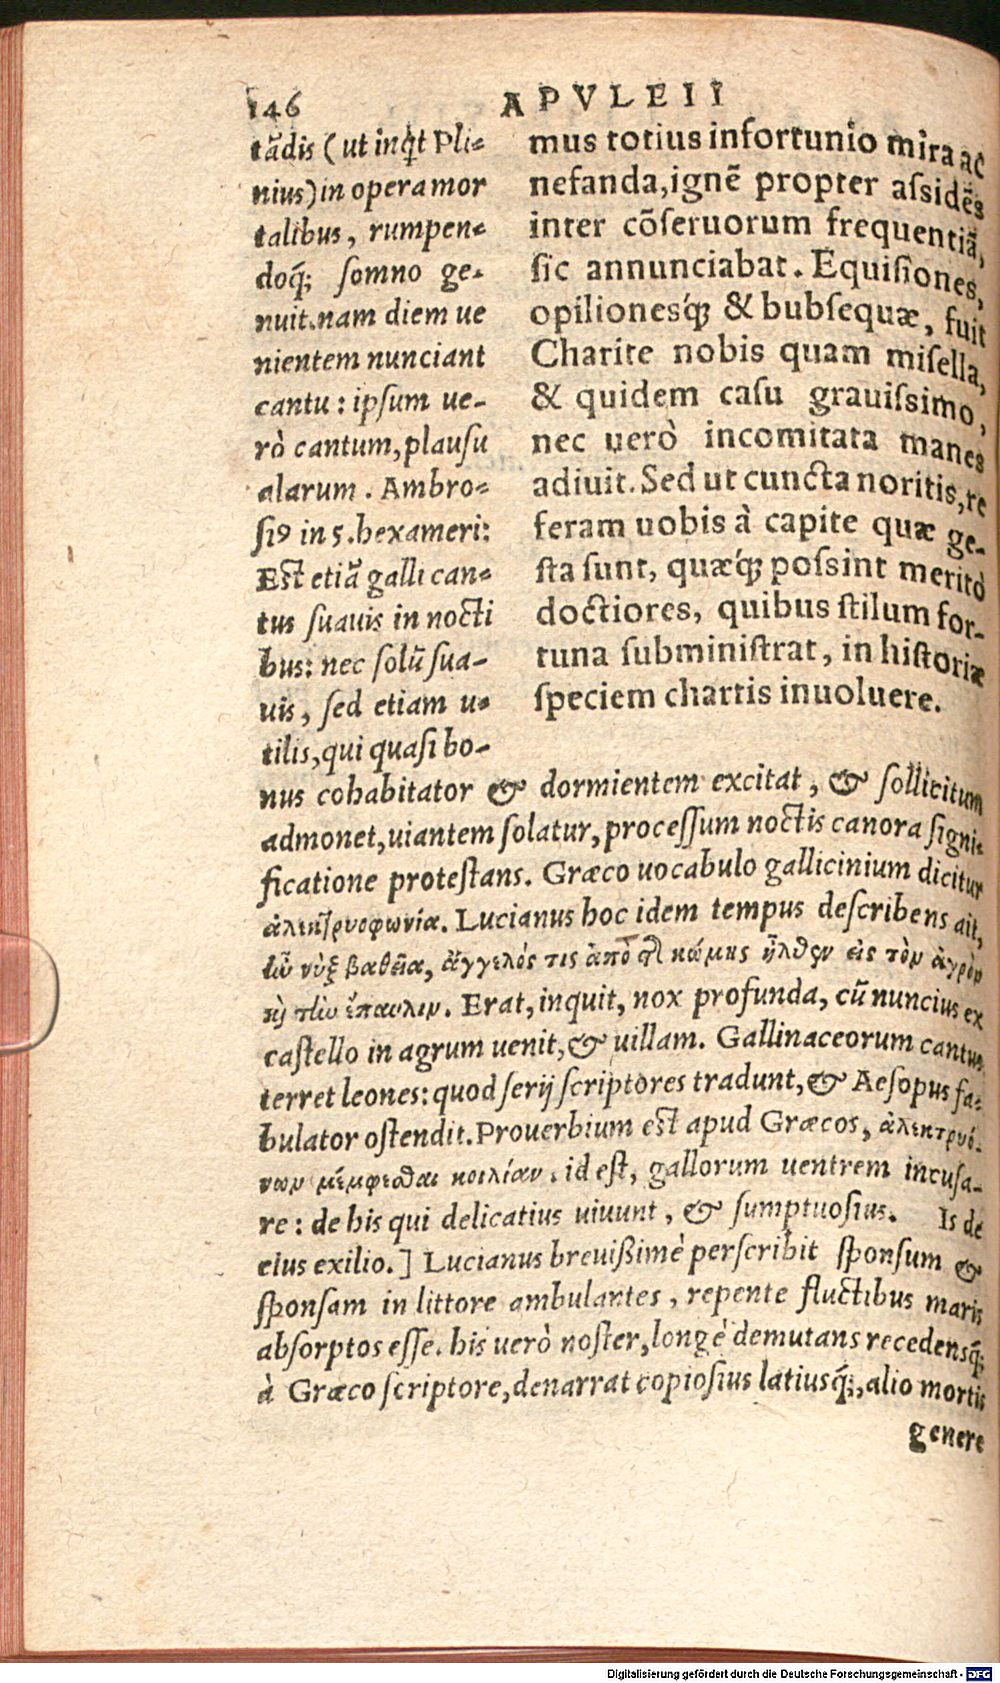 146
APVLEII
tādis (ut inq̇t Pli-
nius) in opera mor
talibus, rumpen-
doq́; somno ge-
nuit. nam diem ue
nientem nunciant
cantu: ipsum ue-
rò cantum, plausu
alarum. Ambro-
siꝰ in 5. hexameri:
Est etiā galli can-
tus suauis in nocti
bus: nec solū sua-
uis, sed etiam u-
tilis, qui quasi bo-
mus totius infortunio mira ac
nefanda, ignē propter assidēs
inter cōseruorum frequentiā,
sic annunciabat. Equisiones,
opilionesq́; & bubsequæ, fuit
Charite nobis quam misella,
& quidem casu grauissimo,
nec uerò incomitata manes
adiuit. Sed ut cuncta noritis, re
feram uobis à capite quæ ge-
sta sunt, quæq́; possint meritò
doctiores, quibus stilum for-
tuna subministrat, in historiæ
speciem chartis inuoluere.
nus cohabitator & dormientem excitat, & sollicitum
admonet, uiantem solatur, processum noctis canora signi-
ficatione protestans. Græco uocabulo gallicinium dicitur
ἀλεκτρυοφωνία. Lucianus hoc idem tempus describens ait,
ἦν νὺξ βαθεῖα, ἄγγελός τις ἀπὸ τῆς κώμης ἦλθεν εἰς τὸν ἀγρὸν
καὶ τὴν ἔπαυλιν. Erat, inquit, nox profunda, cū nuncius ex
castello in agrum uenit, & uillam. Gallinaceorum cantus
terret leones: quod serij scriptores tradunt, & Aesopus fa-
bulator ostendit. Prouerbium est apud Græcos, ἀλεκτρυό-
νων μέμφεσθαι κοιλίαν. id est, gallorum uentrem incusa-
re: de his qui delicatius uiuunt, & sumptuosius. Is de
eius exilio.] Lucianus breuißimè perscribit sponsum &
sponsam in littore ambulantes, repente fluctibus maris
absorptos esse. his uerò noster, longè demutans recedensq́;
à Græco scriptore, denarrat copiosius latiusq́;, alio mortis
genere
Digitalisierung gefördert durch die Deutsche Forschungsgemeinschaft - DFG